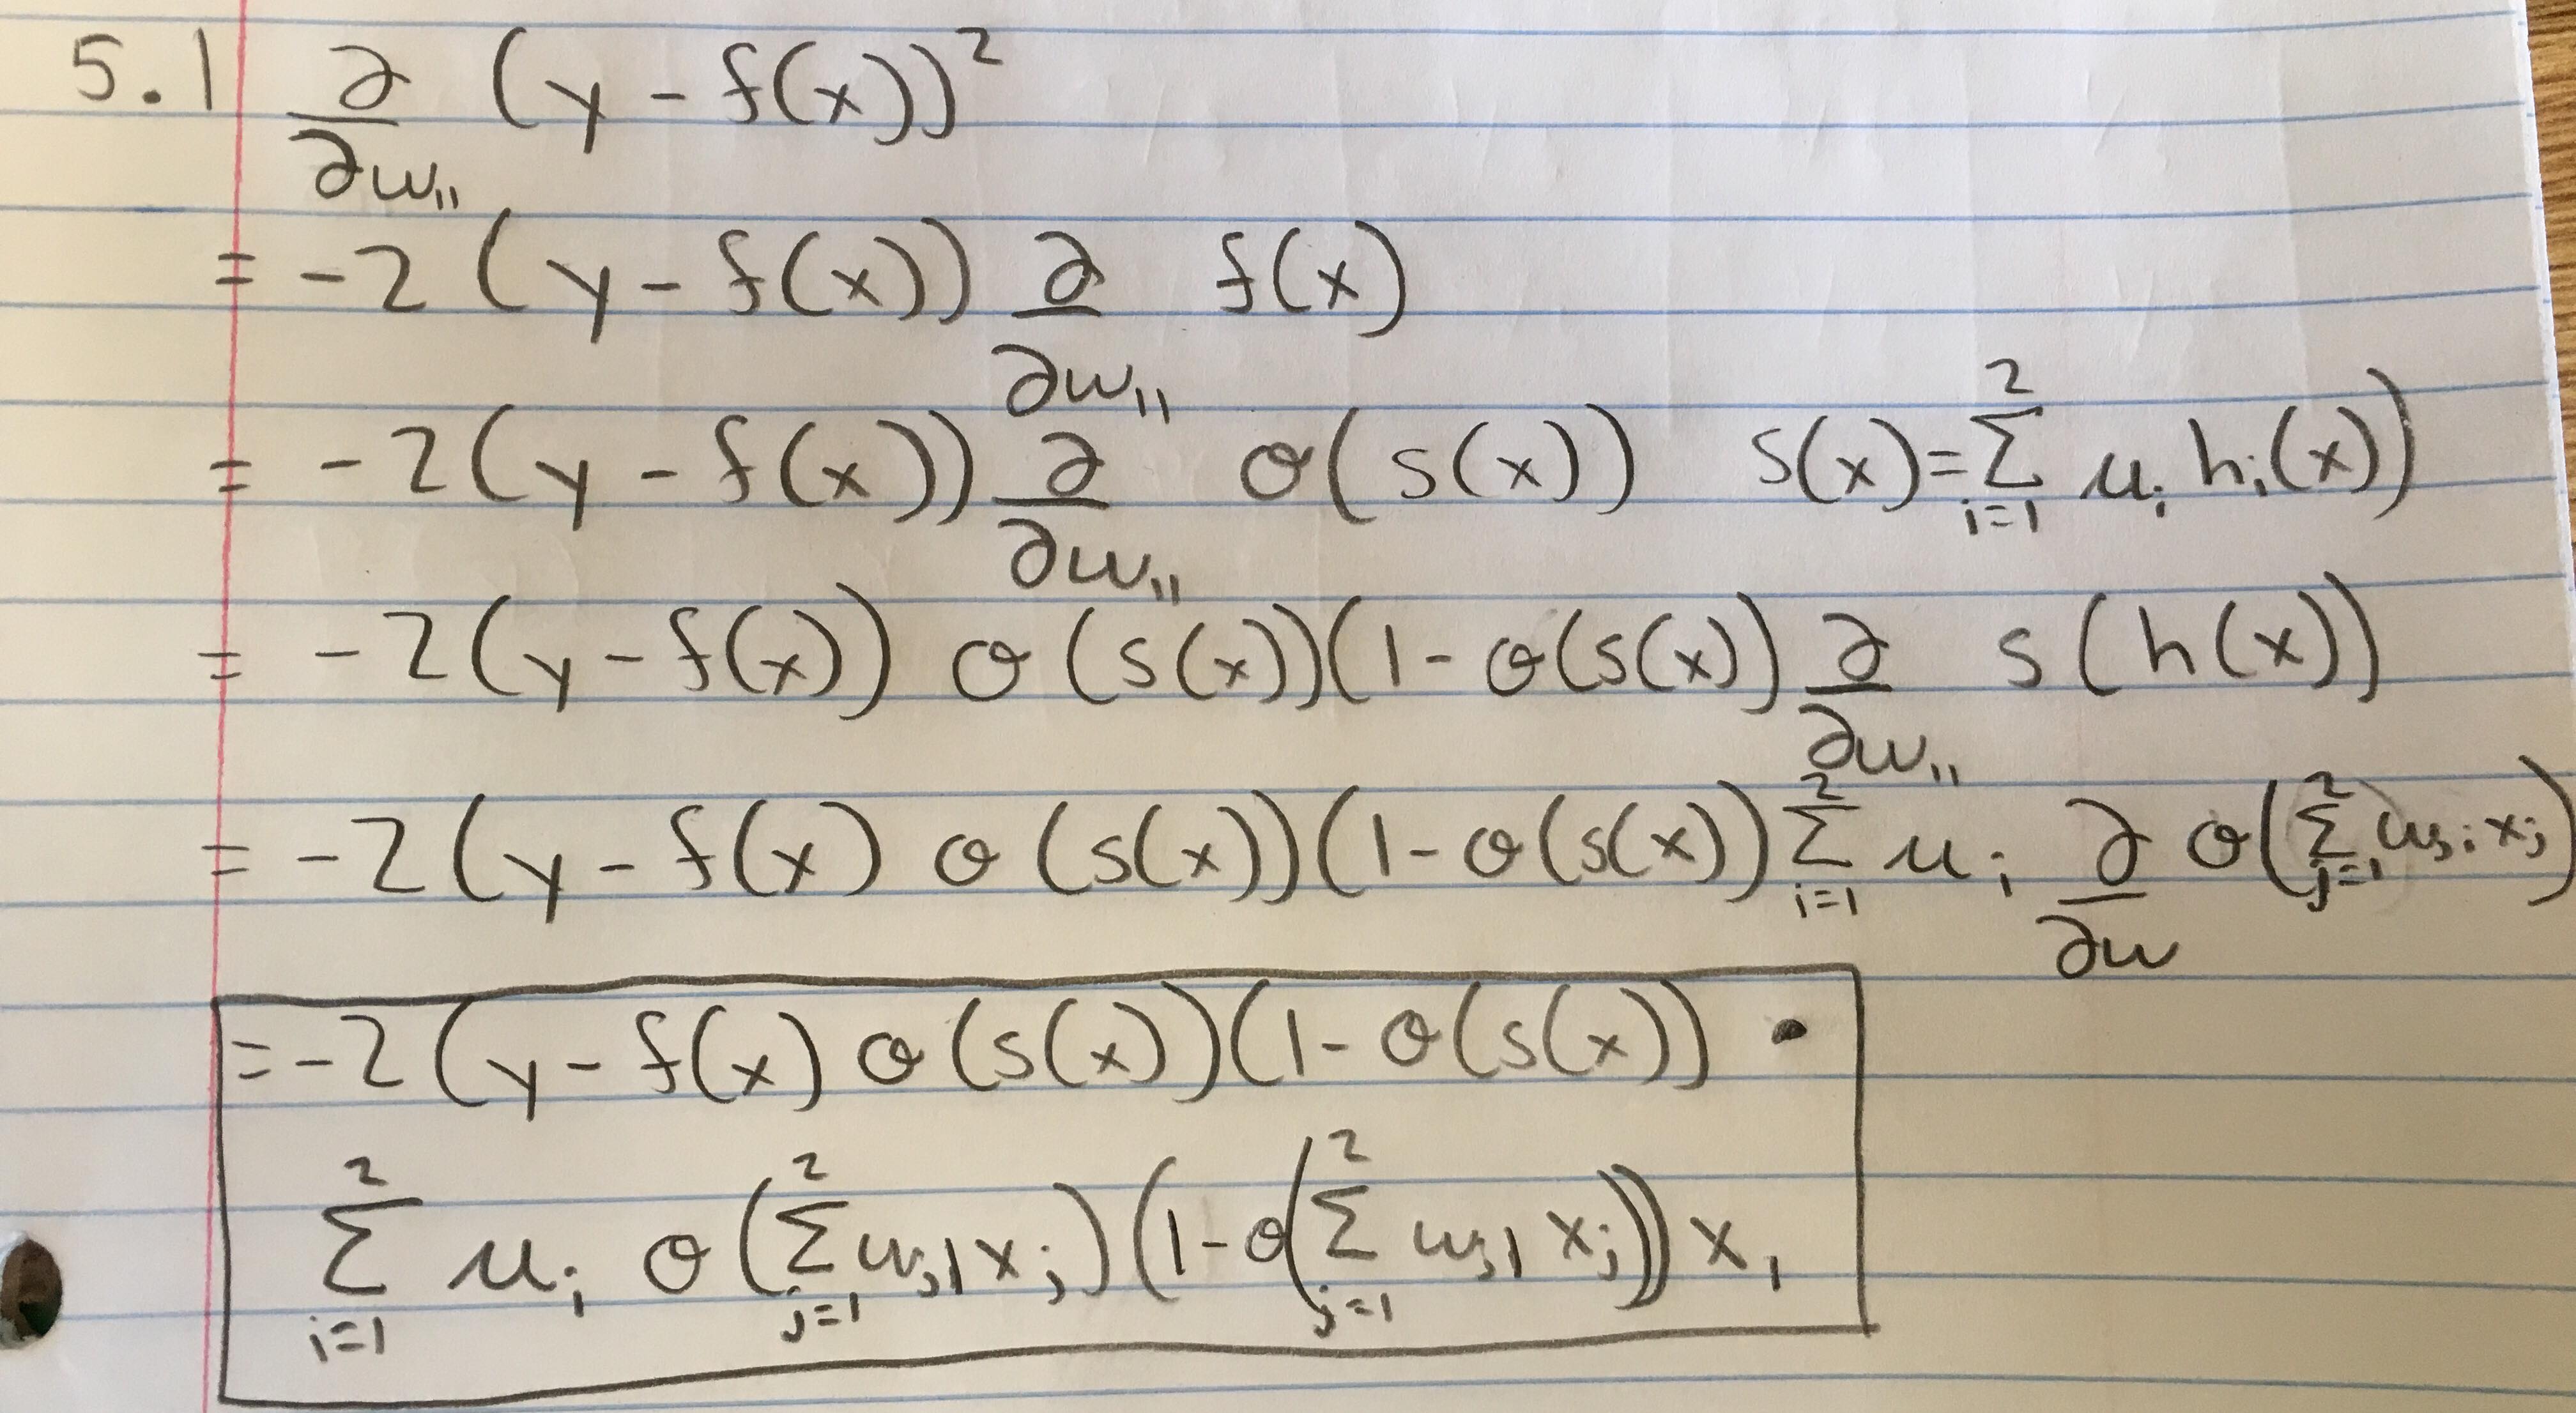 5.1 ∂/∂w₁₁ (y - f(x))²
= -2 (y - f(x)) ∂/∂w₁₁ f(x)
= -2 (y - f(x)) ∂/∂w₁₁ σ(s(x)) s(x) = Σ_{i=1}^{2} u_i h_i(x))
= -2 (y - f(x)) σ(s(x))(1 - σ(s(x)) ∂/∂w₁₁ s(h(x))
= -2 (y - f(x) σ(s(x))(1 - σ(s(x)) Σ_{i=1}^{2} u_i ∂/∂w σ(Σ_{j=1}^{2} w_{ji} x_j)
= -2 (y - f(x) σ(s(x))(1 - σ(s(x)) •
Σ_{i=1}^{2} u_i σ(Σ_{j=1}^{2} w_{j1} x_j)(1 - σ(Σ_{j=1}^{2} w_{j1} x_j)) x₁